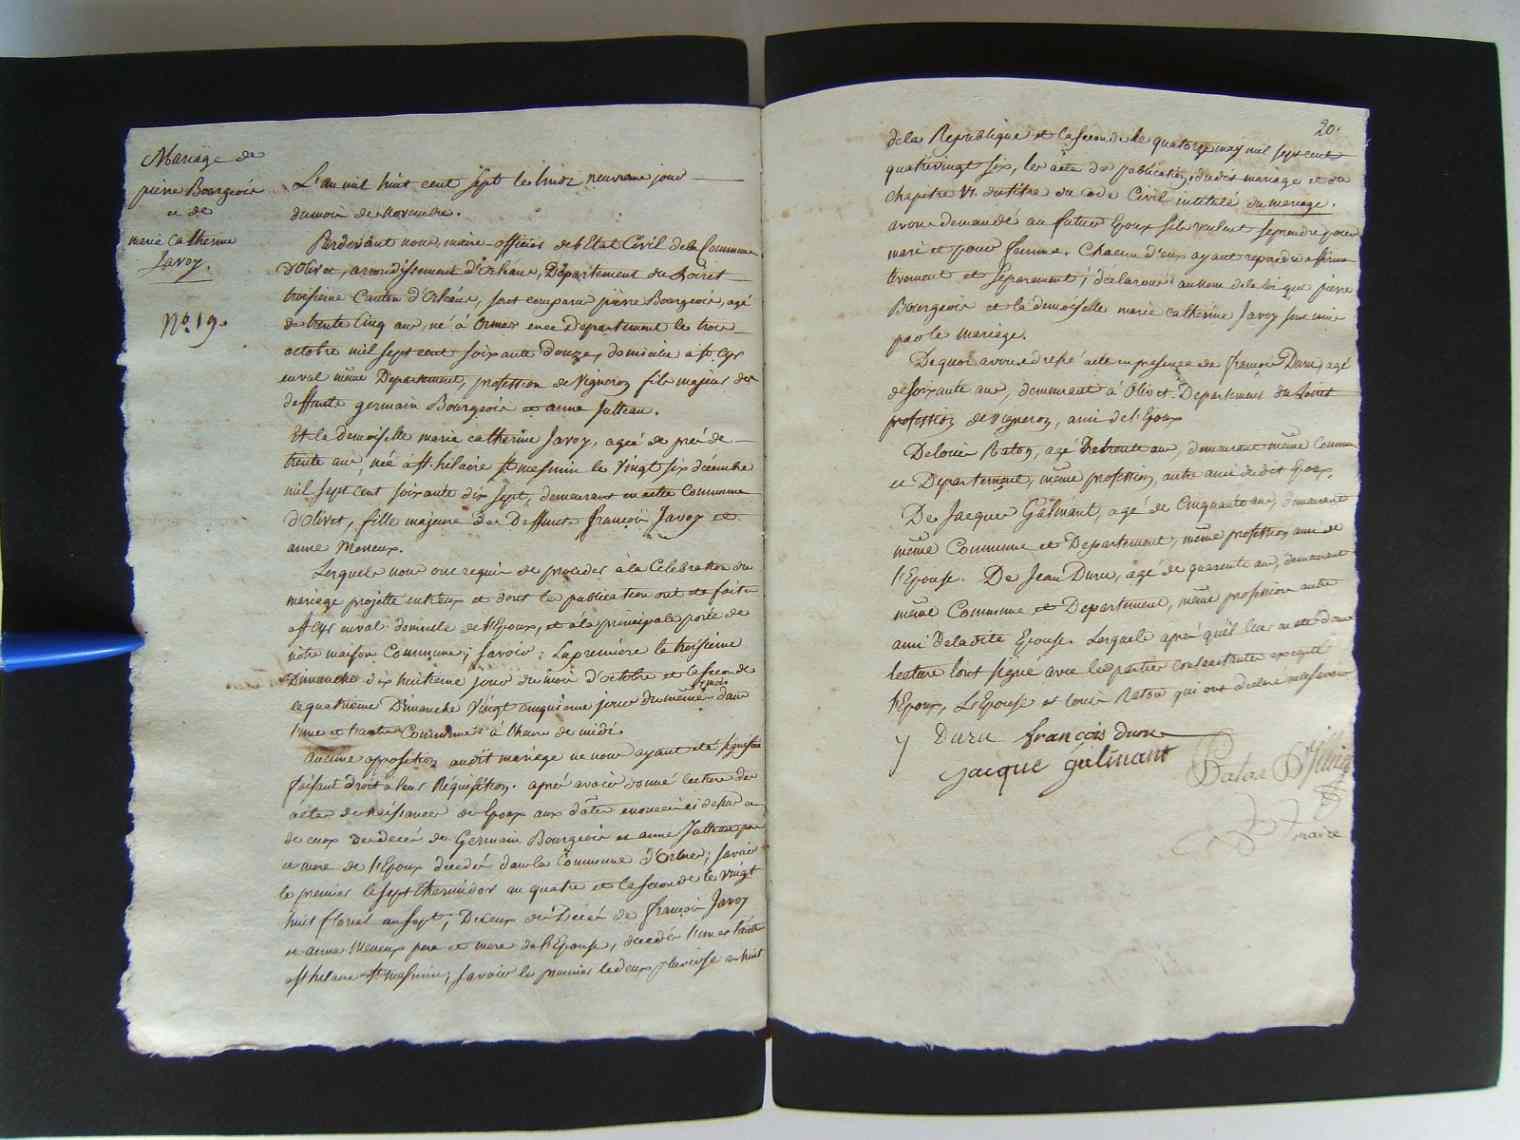 Mariage de
pierre Bourgeois
et de
marie Catherine
Javoy.
No. 19.
L'an mil huit cent sept le lundi neuvieme jour
du mois de Novembre.
Pardevant nous maire officier de l'Etat Civil de la Commune
d'Olivet, arrondissement d'Orléans, Département du Loiret
troisieme Canton d'Orléans, sont comparu pierre Bourgeois, agé
de trente Cinq ans, né à Ormes en ce departement le trois
octobre mil sept cent soixante douze, domicilié à st. Cyr
en val même Departement, profession de Vigneron fils majeur des
deffunts germain Bourgeois et anne Julleau.
Et la demoiselle marie catherine Javoy, agée de près de
trente ans, née à st. hilaire st mesmin le Vingt six décembre
mil sept cent soixante dix sept, demeurant en cette Commune
d'Olivet, fille majeure des Deffunts françois Javoy et
anne Meneux.
Lesquels nous ont requis de proceder à la Celebration du
mariage projetté entr'eux et dont la publication ont été faite
à st Cyr en val domicile de l'Epoux, et à la principale porte de
notre maison Commune; savoir: La première le troisieme
Dimanche dix huitieme jour du mois d'octobre et la seconde
le quatrieme Dimanche Vingt cinquieme jour du même mois dans
l'une et l'autre Communes à l'heure de midi.
Aucune opposition audit mariage ne nous ayant été signifiée
faisant droit à leur Réquisition. après avoir donné lecture des
actes de Naissance des Epoux aux dates enoncées
de ceux de decès de Germain Bourgeois et anne Julleau père
et mere de l'Epoux decedés dans la Commune d'Ormes; savoir
le premier le sept thermidor an quatre et la seconde le vingt
huit floreal an sept; De ceux de Décès de françois Javoy
et anne Meneux pere et mere de l'Epouse, decedés l'un et l'autre
à st hilaire st mesmin; savoir le premier le deux pluviose an huit
20.
de la Republique et la seconde le quatorze may mil sept cent
quatrevingt six, les acte de publication dudit mariage et du
chapitre VI. du titre du Code Civil intitulé du mariage.
avons demandé au futurs Epoux s'ils veulent se prendre pour
mari et pour femme. Chacun d'eux ayant repondu affirma
tivement et séparement; déclarons au nom de la loi que pierre
Bourgeois et la demoiselle marie catherine Javoy sont unis
par le mariage.
De quoi avons dressé acte en presence de françois Duru agé
de soixante ans, demeurant à Olivet Departement du Loiret
profession de vigneron, ami de l'Epoux
De louis Raton, agé de trente ans, demeurant même Commune
et Departement, même profession, autre ami dudit Epoux.
De Jacque Gâlinant, agé de Cinquante ans, demeurant
même Commune et Departement, même profession ami de
l'Epouse. De Jean Duru, agé de quarente ans, demeurant
même Commune et Departement, même profession autre
ami de la dite Epouse. Lesquels après qu'il leur en été donné
lecture l'ont signé avec les parties contractantes excepté
l'Epoux, L'Epouse et louis Raton qui ont declaré ne savoir
y Duru françois duru
jacque gâlinant
maire